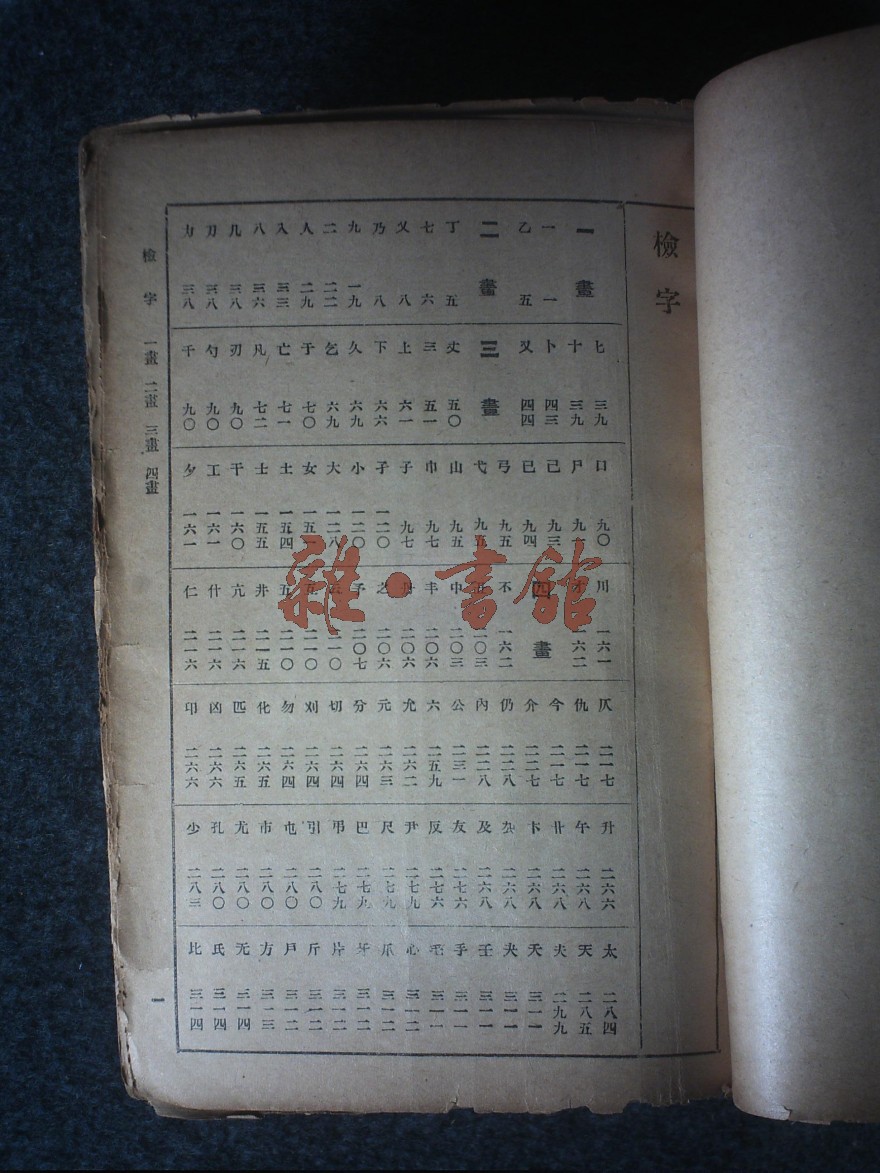 檢字
一畫
一 一
乙 五
二畫
丁 五
七 六
乂 八
乃 八
九 一九
二 二二
人 二九
入 三三
八 三六
几 三八
刀 三八
力 三八
匕 三九
十 三九
卜 四三
又 四四
三畫
丈 五〇
三 五一
上 六一
下 六六
久 六九
乞 六九
于 七〇
亡 七一
凡 七二
刃 九〇
勺 九〇
千 九〇
口 九〇
尸 九
己 九三
已 九四
弓 九五
弋 九五
山 九五
巾 九七
子 九七
孑 一二〇
小 一二〇
大 一二八
女 一五一
土 一五四
士 一五五
干 一六〇
工 一六一
夕 一六一
川 一六一
才 一六二
四畫
不 一六二
丑 二〇三
中 二〇三
丰 二〇六
二〇六
之 二〇六
予 二〇七
云 二一〇
二一〇
五 二一〇
井 二一五
亢 二一六
什 二一六
仁 二一六
仄 二一七
仇 二一七
今 二一七
介 二二七
仍 二二八
內 二二八
公 二三一
六 二五九
允 二六二
元 二六三
分 二六四
切 二六四
刈 二六四
勿 二六四
化 二六五
匹 二六五
凶 二六六
卬 二六六
升 二六六
午 二六八
卄 二六八
卞 二六八
厹 二六八
及 二六八
友 二七六
反 二七六
尹 二七九
尺 二七九
巴 二七九
弔 二七九
引 二八〇
屯 二八〇
市 二八〇
尤 二八〇
孔 二八〇
少 二八三
太 二八四
天 二八五
夫 二九九
夭 三一一
夬 三一一
壬 三一一
手 三一一
毛 三一一
心 三一二
爪 三一二
牙 三一二
片 三一二
斤 三一二
戶 三一二
方 三一三
无 三一四
氏 三一四
比 三一四
檢字 一畫 二畫 三畫 四畫
一
雜·書館